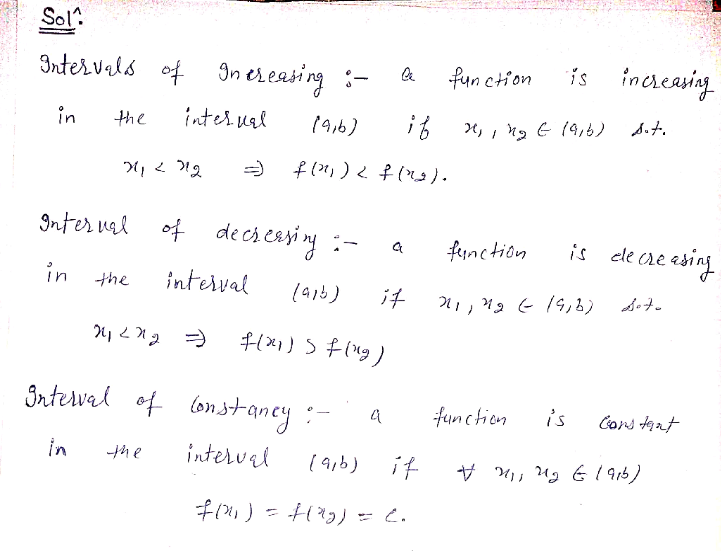 Solⁿ:
Intervals of Increasing :- a function is increasing
in the interval (a,b) if x₁, x₂ ∈ (a,b) s.t.
x₁ < x₂ ⇒ f(x₁) < f(x₂).
Interval of decreasing :- a function is decreasing
in the interval (a,b) if x₁, x₂ ∈ (a,b) s.t.
x₁ < x₂ ⇒ f(x₁) > f(x₂)
Interval of Constancy :- a function is Constant
in the interval (a,b) if ∀ x₁, x₂ ∈ (a,b)
f(x₁) = f(x₂) = c.